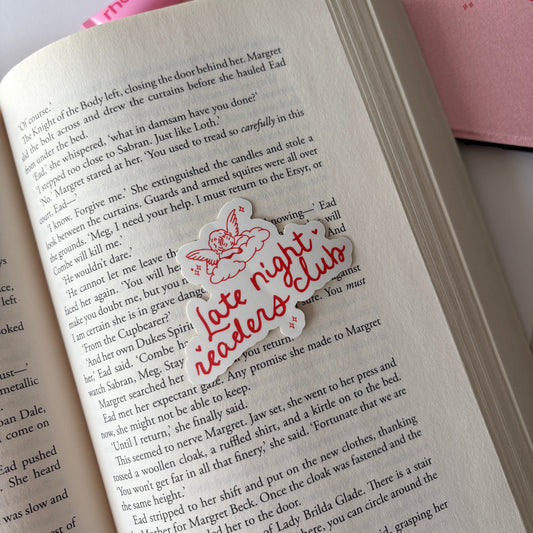 'Of course.'
The Knight of the Body left, closing the door behind her. Margret
slid the bolt across and drew the curtains before she hauled Ead
from under the bed.
'Ead,' she whispered, 'what in damsam have you done?'
'I stepped too close to Sabran. Just like Loth.'
'No.' Margret stared at her. 'You used to tread so carefully in this
court, Ead—'
'I know. Forgive me.' She extinguished the candles and stole a
look between the curtains. Guards and armed squires were all over
the grounds. 'Meg, I need your help. I must return to the Ersyr, or
Combe will kill me.'
'He wouldn't dare.'
'He cannot let me leave the knowing—' Ead
faced her again. 'You will hear and will
make you doubt me, but you k
I am certain she is in grave dange You must
'From the Cupbearer?'
'And her own Dukes Spirit against
her,' Ead said. 'Combe ha
watch Sabran, Meg. Stay you return.'
Margret searched her
Ead met her expectant gaze. Any promise she made to Margret
now, she might not be able to keep.
'Until I return,' she finally said.
This seemed to nerve Margret. Jaw set, she went to her press and
tossed a woollen cloak, a ruffled shirt, and a kirtle on to the bed.
'You won't get far in all that finery,' she said. 'Fortunate that we are
the same height.'
Ead stripped to her shift and put on the new clothes, thanking
Mother for Margret Beck. Once the cloak was fastened and the
led her to the door.
of Lady Brilda Glade. There is a stair
here, you can circle around the
said, grasping her
Late night
readers club
left
ooked
ust—'
metallic
ban Dale,
l come on
Ead pushed
She heard
was slow and
est of